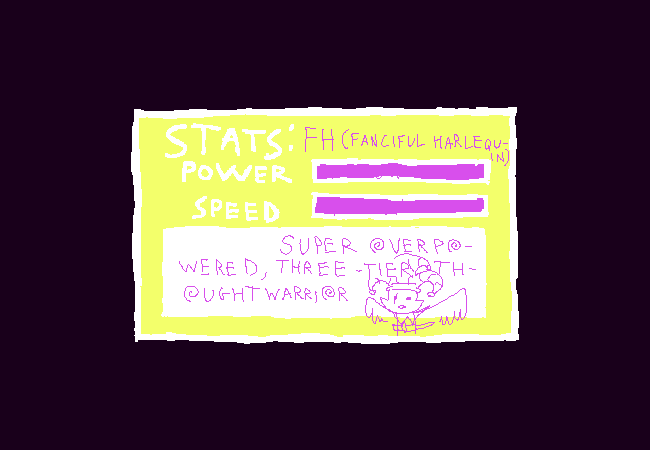 STATS: FH (FANCIFUL HARLEQU-
IN)
POWER
SPEED
SUPER @VERP@-
WERED, THREE-TIER TH-
@UGHTWARRI@R